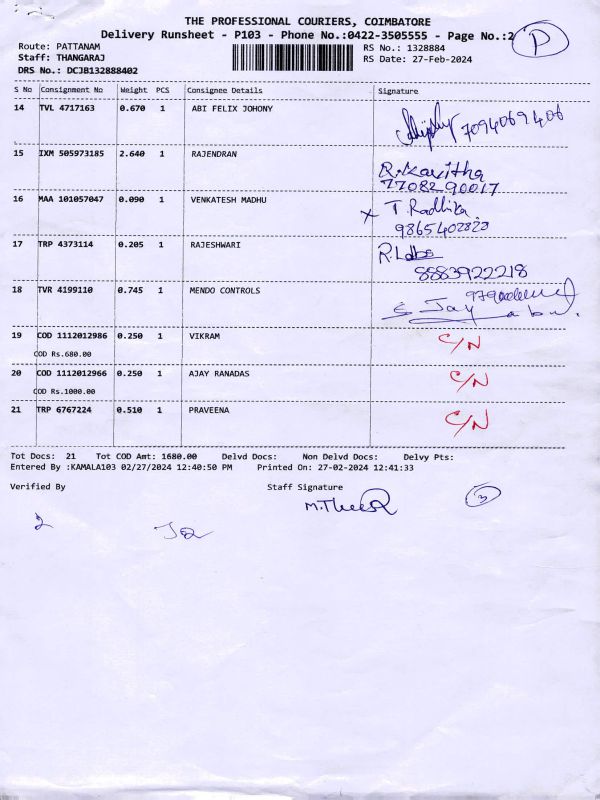 THE PROFESSIONAL COURIERS, COIMBATORE
Delivery Runsheet - P103 - Phone No.:0422-3505555 - Page No.:2 P
Route: PATTANAM RS No.: 1328884
Staff: THANGARAJ RS Date: 27-Feb-2024
DRS No.: DCJB132888402
S No Consignment No Weight PCS Consignee Details Signature
14 TVL 4717163 0.670 1 ABI FELIX JOHONY
7094069406
15 IXM 505973185 2.640 1 RAJENDRAN R.Kavitha
7708290017
16 MAA 101057047 0.090 1 VENKATESH MADHU x T.Radhika
9865402820
17 TRP 4373114 0.205 1 RAJESHWARI R.
8883922218
18 TVR 4199110 0.745 1 MENDO CONTROLS
S Jay
19 COD 1112012986 0.250 1 VIKRAM C/N
COD Rs.680.00
20 COD 1112012966 0.250 1 AJAY RANADAS C/N
COD Rs.1000.00
21 TRP 6767224 0.510 1 PRAVEENA C/N
Tot Docs: 21 Tot COD Amt: 1680.00 Delvd Docs: Non Delvd Docs: Delvy Pts:
Entered By :KAMALA103 02/27/2024 12:40:50 PM Printed On: 27-02-2024 12:41:33
Verified By Staff Signature
3
2